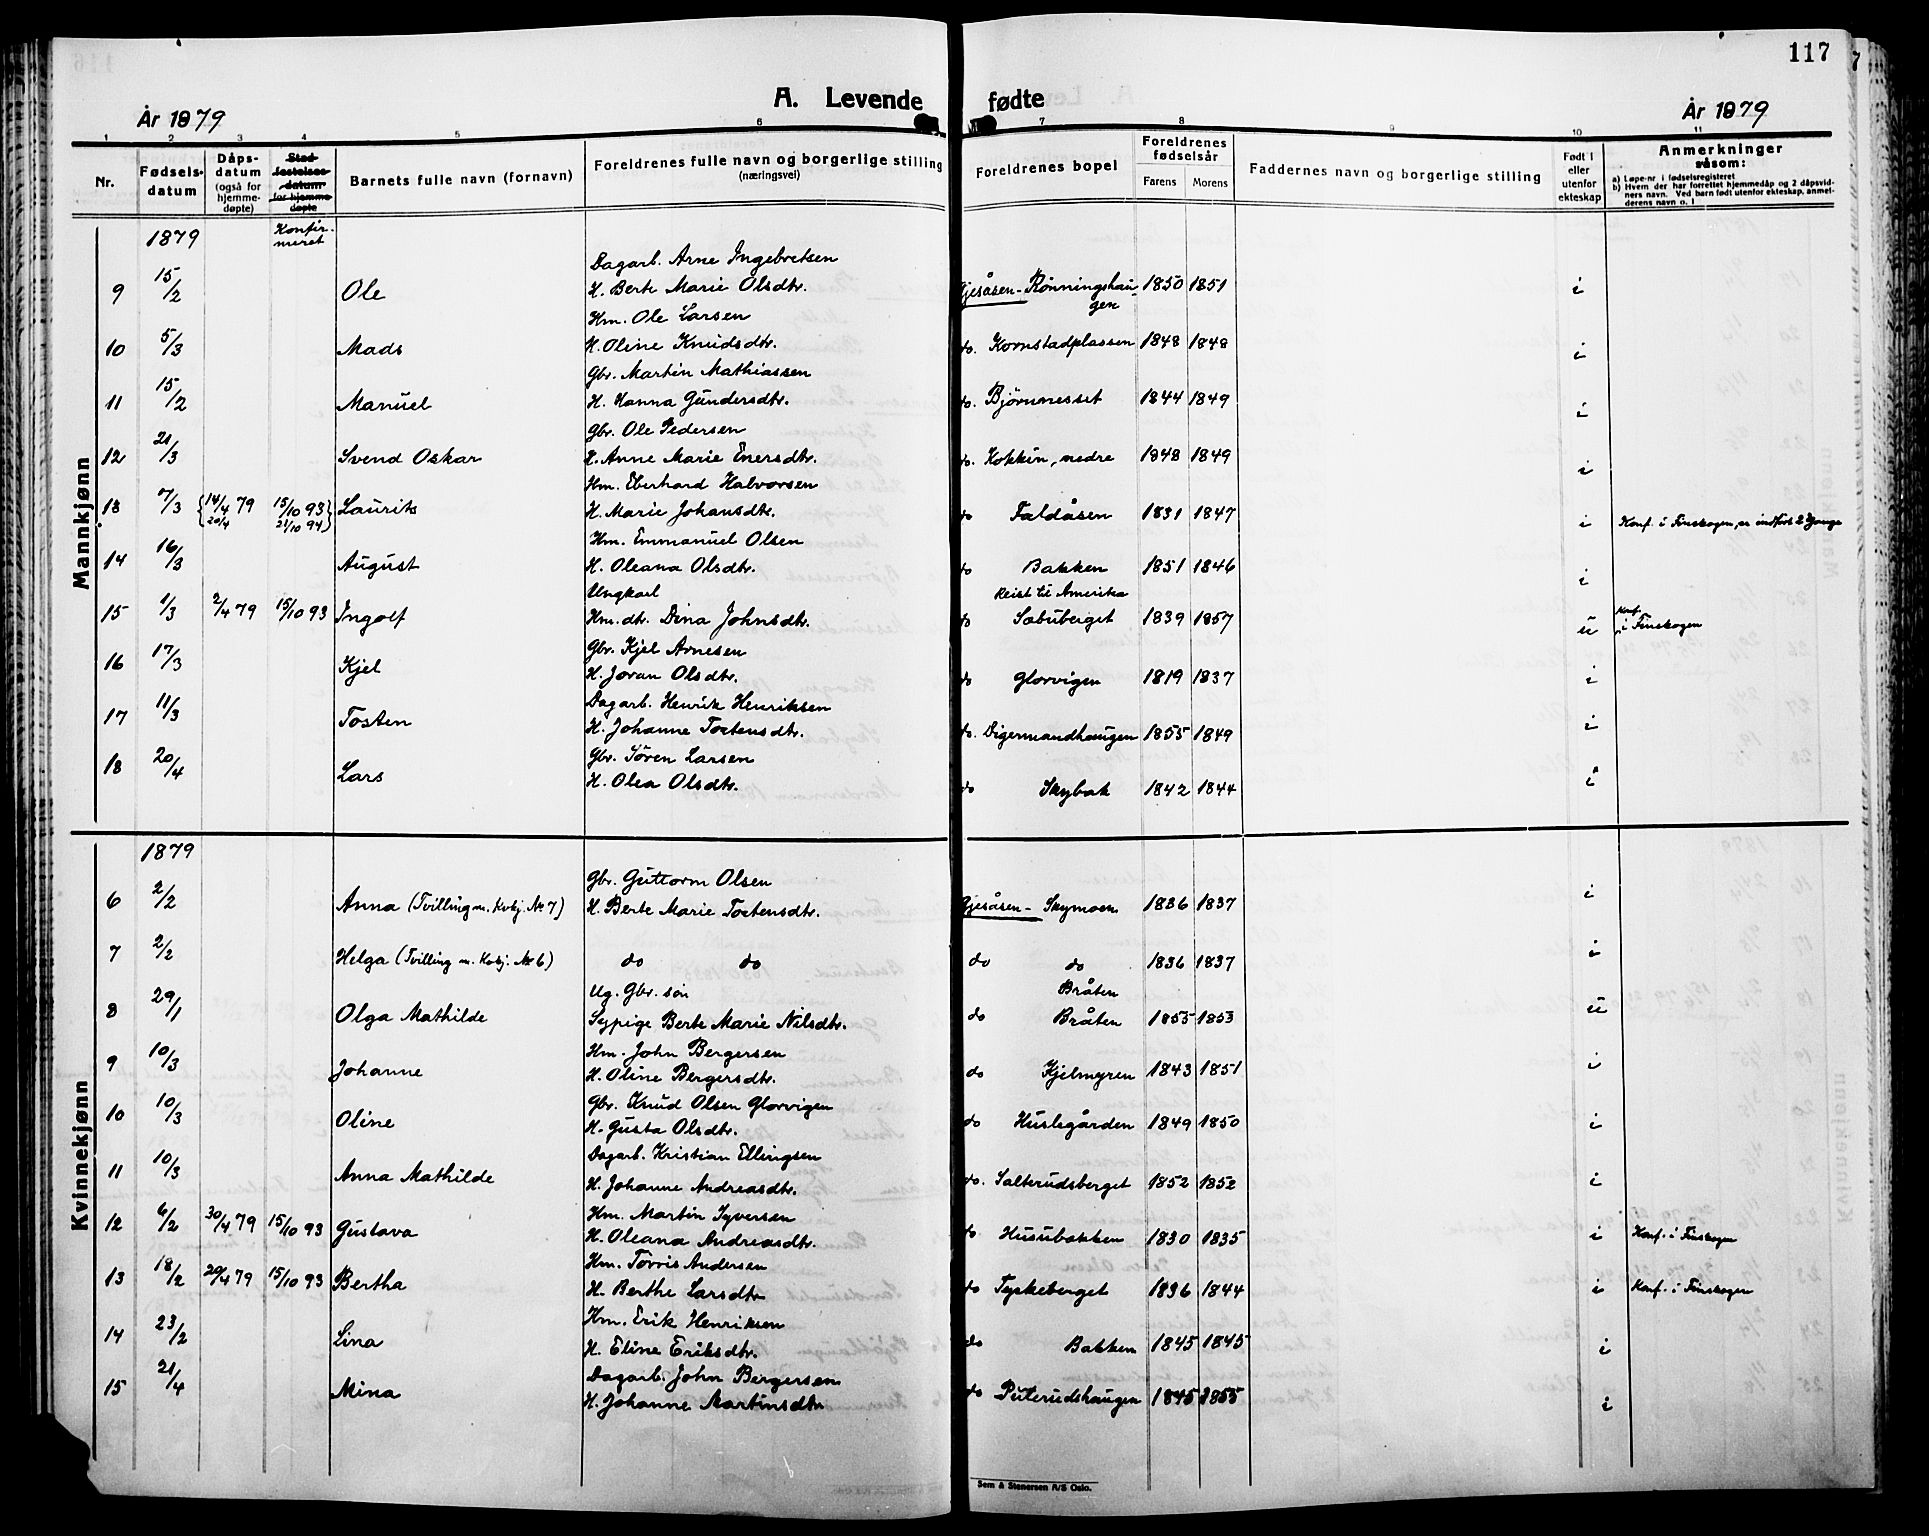 117
A. Levende fødte
År 1879
År 1879
1 2 3 4 5 6 7 8 9 10 11
Nr.
Fødsels-
datum
Dåps-
datum
(også for
hjemme-
døpte)
Stad-
festelses-
datum
for hjemme-
døpte
Barnets fulle navn (fornavn)
Foreldrenes fulle navn og borgerlige stilling
(næringsvei)
Foreldrenes bopel
Foreldrenes
fødselsår
Farens Morens
Faddernes navn og borgerlige stilling
Født i
eller
utenfor
ekteskap
Anmerkninger
såsom:
a) Løpe-nr i fødselsregisteret
b) Hvem der har forrettet hjemmedåp og 2 dåpsvid-
ners navn. Ved barn født utenfor ekteskap, anmel-
derens navn o. l
Mannkjønn
1879 Konfir-
meret
Dagarb. Arne Ingebretsen
9 15/2 Ole H. Berte Marie Olsdtr. Gjesåsen - Rønningshau- 1850 1851 i
gen
Hm. Ole Larsen
10 5/3 Mads H. Oline Knudsdtr. do. Kornstadplassen 1848 1848 i
Gbr. Martin Mathiassen
11 15/2 Manuel H. Hanna Gundersdtr. do. Bjørnnesset 1844 1849 i
Gbr. Ole Pedersen
12 21/3 Svend Oskar H. Anne Marie Enersdtr. do. Kokkin, nedre 1848 1849 i
Hm. Eberhard Halvorsen
13 7/3 {14/4 79 15/10 93} Laurits H. Marie Johansdtr. do Faldåsen 1831 1847 i Konf. i Finskogen, er indført 2 gange
20/4 21/10 94
Hm. Emmanuel Olsen
14 16/3 August H. Oleana Olsdtr. do Bakken 1851 1846 i
Ungkarl Reist til Amerika
15 1/3 2/4 79 15/10 93 Ingolf Hm. dt. Dina Johnsdtr. do Sæbuberget 1839 1857 u Konf.
i Finskogen
Gbr. Kjel Arnesen
16 17/3 Kjel H. Joran Olsdtr. do Glorvigen 1819 1837 i
Dagarb. Henrik Henriksen
17 11/3 Tosten H. Johanne Tostensdtr. do. Digermandhaugen 1855 1849 i
Gbr. Søren Larsen
18 20/4 Lars H. Olea Olsdtr. do Skybak 1842 1844 i
Kvinnekjønn
1879
Gbr. Guttorm Olsen
6 2/2 Anna (Tvilling m. Kvkj. № 7) H. Berte Marie Tostensdtr. Gjesåsen - Skymoen 1836 1837 i
7 2/2 Helga (Tvilling m. Kvkj. № 6) do do do do 1836 1837 i
Ug. Gbr. søn Bråten
8 29/1 Olga Mathilde Sypige Berte Marie Nilsdtr. do Bråten 1855 1853 u
Hm. John Bergersen
9 10/3 Johanne H. Oline Bergersdtr. do Kjelmyren 1843 1851 i
Gbr. Knud Olsen Glorvigen
10 10/3 Oline H. Gusta Olsdtr. do Huslegården 1849 1850 i
Dagarb. Kristian Ellingsen
11 10/3 Anna Mathilde H. Johanne Andreasdtr. do. Salterudsberget 1852 1852 i
Hm. Martin Syversen
12 6/2 30/4 79 15/10 93 Gustava H. Oleana Andreasdtr. do Husubakken 1830 1835 i Konf. i Finskogen
Hm. Torris Andersen
13 18/2 20/4 79 15/10 93 Bertha H. Berthe Larsdtr do Tyskeberget 1836 1844 i Konf. i Finskogen
Hm. Erik Henriksen
14 23/2 Lina H. Eline Eriksdtr. do Bakken 1845 1845 i
Dagarb. John Bergersen
15 21/4 Mina H. Johanne Martinsdtr do Puterudshaugen 1845 1855 i
Sem & Stenersen A/S Oslo.